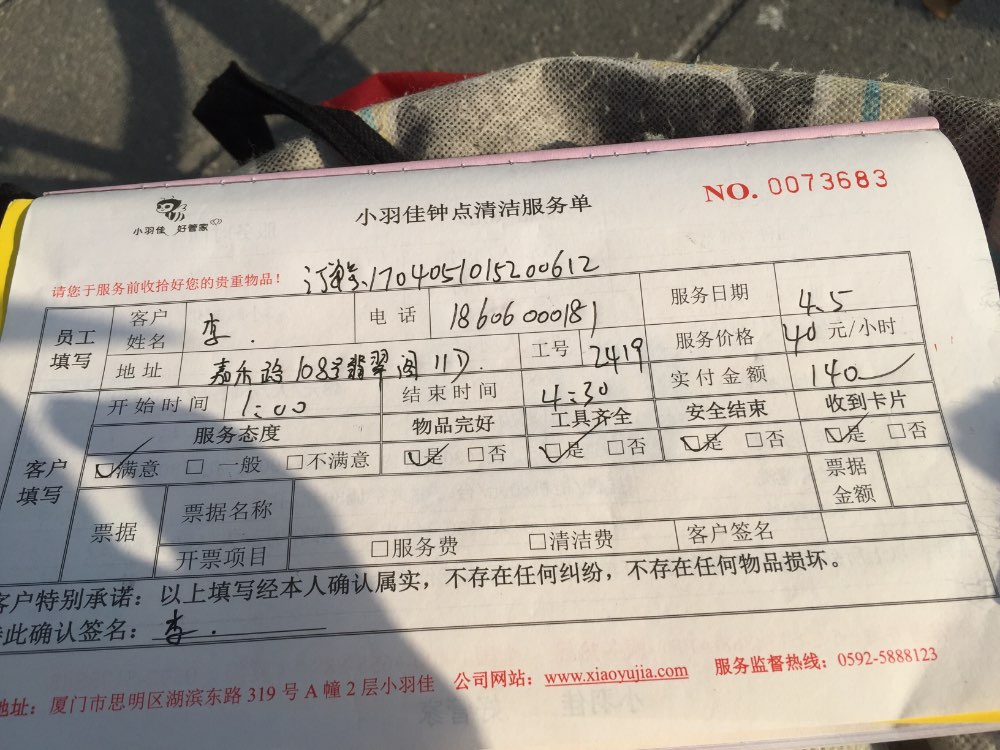 小羽佳 好管家
小羽佳钟点清洁服务单
NO. 0073683
请您于服务前收拾好您的贵重物品！ 订单号:1704051015200612
员工填写 客户姓名 李. 电话 18606000181 服务日期 4.5
地址 嘉禾路108号翡翠阁11D 工号 2419 服务价格 40元/小时
开始时间 1:00 结束时间 4:30 实付金额 140
客户填写 服务态度 物品完好 工具齐全 安全结束 收到卡片
☑满意 □一般 □不满意 ☑是 □否 ☑是 □否 ☑是 □否 ☑是 □否
票据 票据名称 票据金额
开票项目 □服务费 □清洁费 客户签名
客户特别承诺：以上填写经本人确认属实，不存在任何纠纷，不存在任何物品损坏。
此确认签名：李.
地址：厦门市思明区湖滨东路319号A幢2层小羽佳 公司网站：www.xiaoyujia.com 服务监督热线：0592-5888123